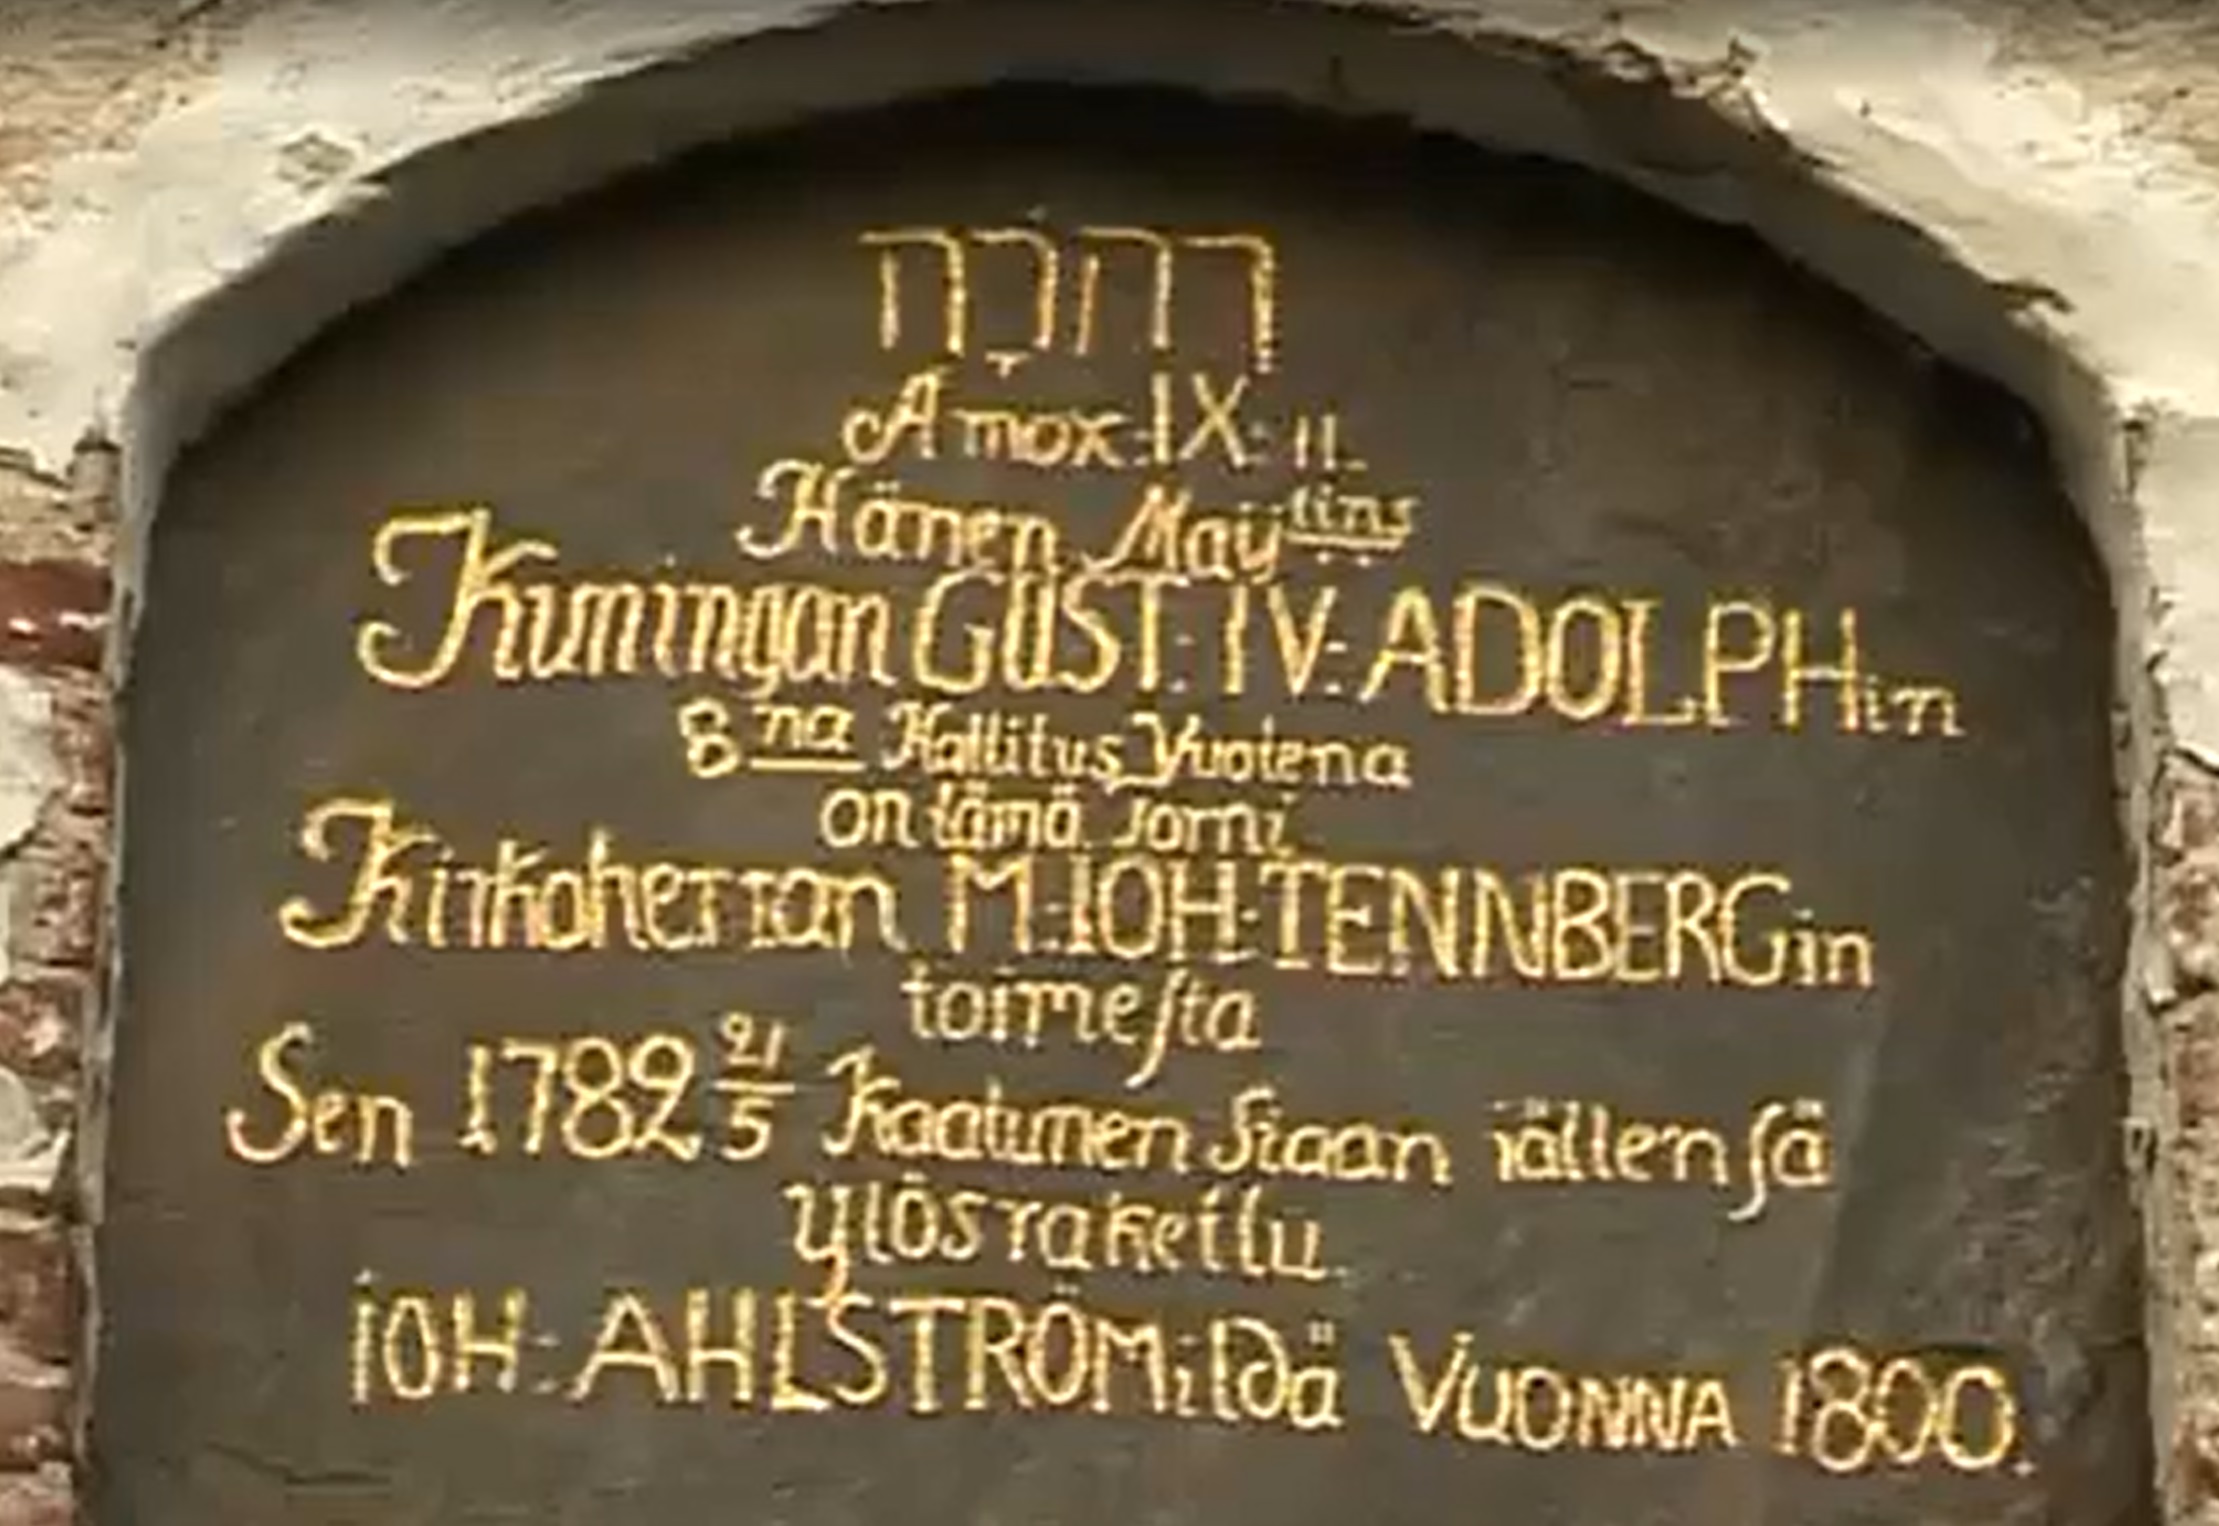 יהוה
Amox: IX: 11.
Hänen Maij<sup>tins</sup>
Kuningan GUST: IV: ADOLPHin
8<sup>na</sup> Hallitus Vuotena
on tämä torni
Kirkoherran M: IOH: TENNBERGin
toimeſta
Sen 1782 21/5 Kaatunen Siaan iällenſä
ylösrakettu.
IOH: AHLSTRÖMildä VUONNA 1800.